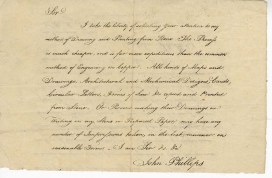 Sir
I take the liberty of soliciting your attention to my
method of Drawing and Printing from Stone. The Process
is much cheaper, and is far more expeditious than the common
method of Engraving on Copper. All kinds of Maps and
Drawings, Architectural and Mechanical Designs,
Circular Letters, Forms of Law &c copied and Printed
from Stone. Or Persons making their Drawings or
Writing on my Stone or Prepared Paper, may have any
number of Impressions taken, in the best manner on
reasonable Terms. I am Sir &c &c
John Phillips